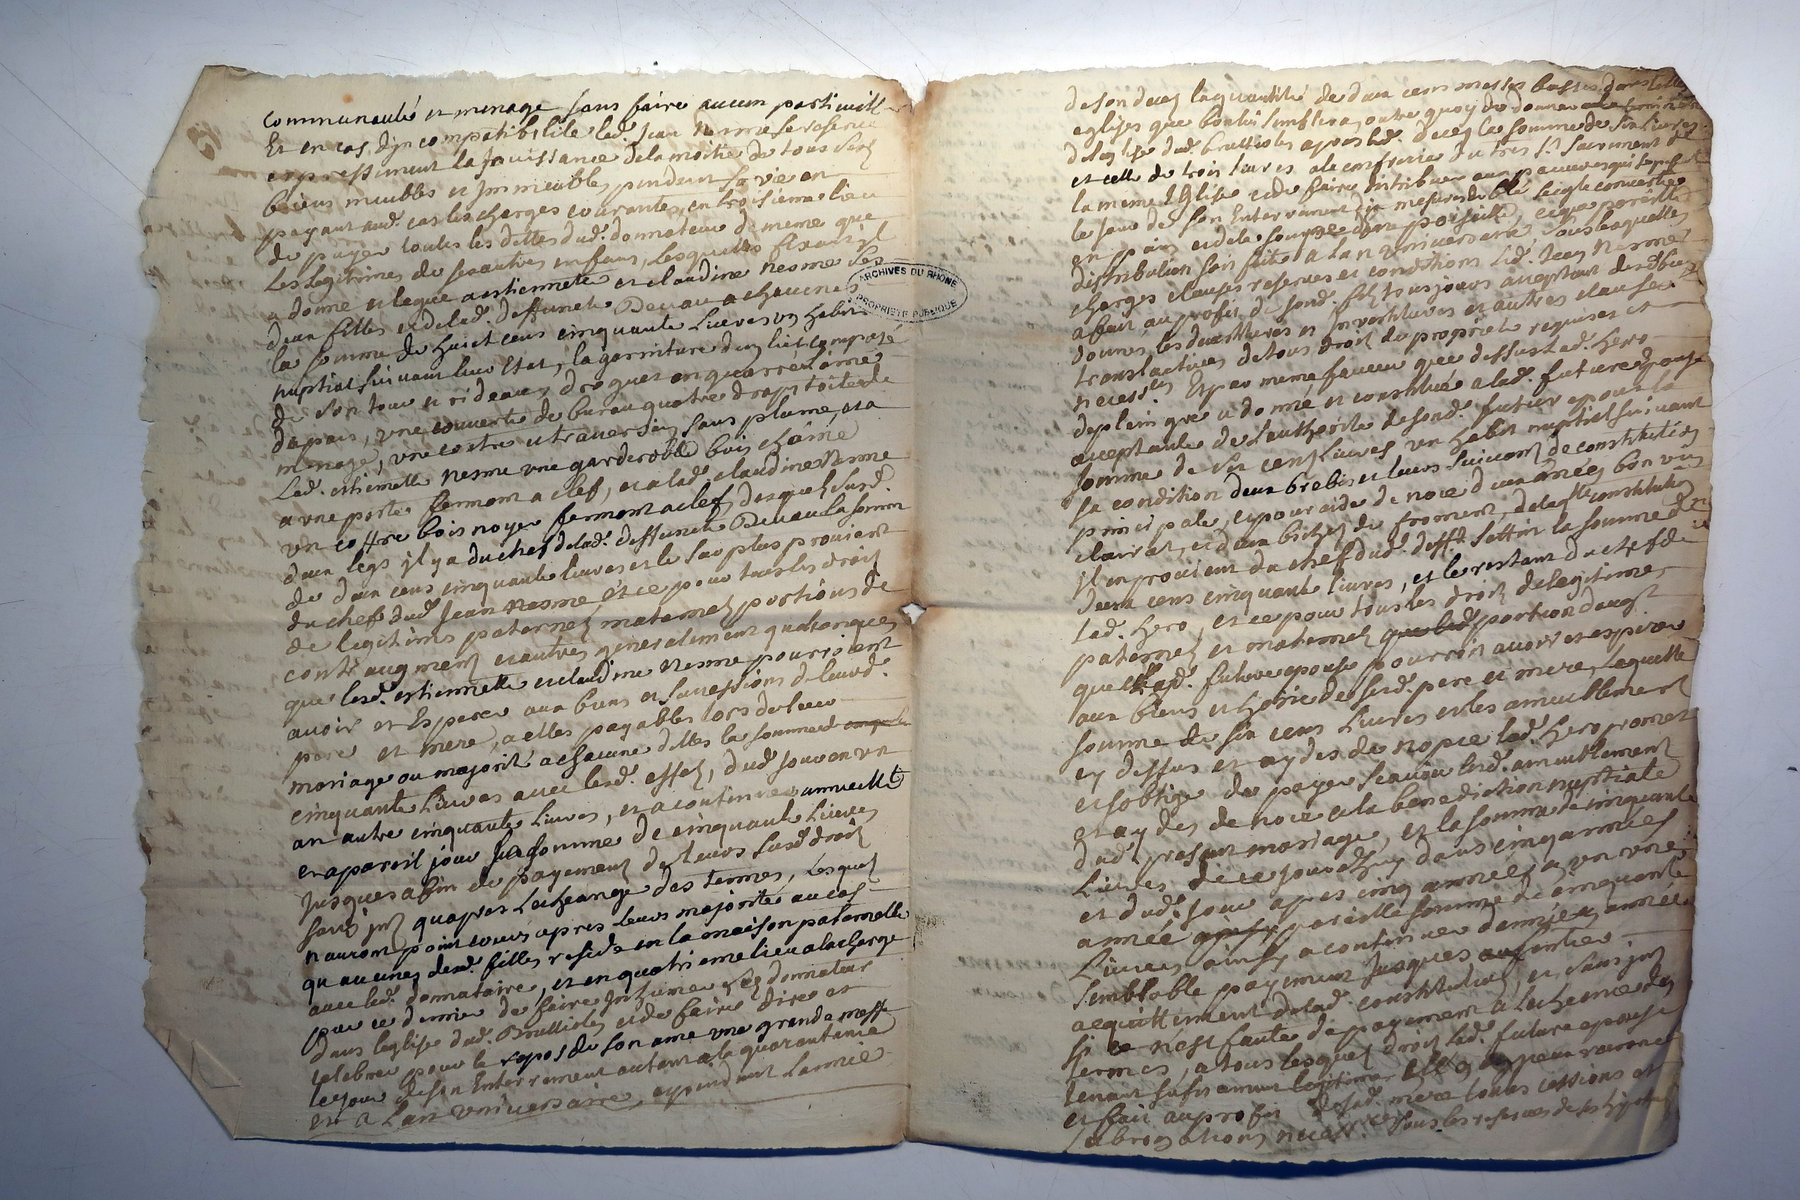 communauté et menage sans faire aucun particuill
Et en cas dJncompatibilité led. Jean Nesme se reserve
expressement la Jouissance de la moitié de tous sesd
biens meubles et Jmmeubles pendant sa vie en
payant aud. cas les charges courantes, en troisieme lieu
de payer toutes les dettes dud. donnateur de meme que
les legitimes de ses autres enfans, lesquelles fixant il
a donné et legué a estiennette et claudine Nesme ses
deux filles et de lad. deffuncte Devau a chacune
la somme de huict cens cinquante Livres un habit
nuptial suivant leur Estat, la garniture d'un lict composé
de son tour et rideaux droguet en quarré
depais, une couverte de bureau quatre draps toile de
menage, une coetre et traversin sans plume, et a
Lad. estiennette Nesme une garderobbe bois chaine
a une porte fermant a clef, et a lad. claudine Nesme
un coffre bois noyer fermant a clef desquels susd.
deux legs jl y a du chef de lad. deffuncte Devau la somme
de deux cens cinquante livres et le surplus provient
du chef dud. Jean Nesme, et ce pour tous les droits
de legitimes paternels maternels portions de
contr'augment et autres generalement quelconques
que lesd. estiennette et claudine Nesme pourroient
avoir et Esperer aux biens et successions de leursd.
pere et mere, a elles payables lors de leur
mariage ou majorité a chacune d'elles la somme de
cinquante Livres avec lesd. effets, dud. jour en un
an autre cinquante Livres, et a continuer annuelle
et a pareil jour la somme de cinquante Livres
Jusques a fin de payement de leurs susd. droits
sans jnt. qu'apres l'echeange des termes, lesquels
n'auront point cours apres leurs majorité au cas
qu'aucunes desd. filles reside en la maison paternelle
avec led. donnataire, et en quatrieme lieu a la charge
par ce dernier de faire Jnhumer led. donnateur
dans leglise dud. Brullioles et de faire dire et
celebrer pour le repos de son ame une grande messe
le jour de son Enterrement autant a la quarantaine
et a Lanniversaire, et pendant Lannée
de son deces la quantité de deux cens messes basses dans telles
eglises que bon luy semblera, outre quoy de donner
de leglise dud. brullioles apres led. deces la somme de six Livres
et celle de trois livres a la confrerie du tres St. Sacrement de
la meme Eglise et de faire distribuer aux pauvres qui
le jour de son Enterrement six mesures de blé seigle converties
en pain et de la souppe de pois, et que pareille
distribution soit faite a Lanniversaire sous lesquelles
charges clauses reserves et conditions led. Jean Nesme
a fait au profit de sond. fils tousjours acceptant desd. biens
donnés les devestitures et Jnvestitures et autres clauses
translatives de tous droits de proprieté requises et
necess.res Et par meme faveur que dessus Lad. Hero
de plein gré a donné et constitué a lad. future epouse
acceptante de lauthorité de sond. futur epoux la
somme de six cens livres un habit nuptial suivant
sa condition deux brebis et leurs suivants de constitution
principale, et pour aide de noce deux anées bon vin
clairet, et deux bichets de froment, de laq.lle constitution
jl en provient du chef dud. deff. la somme de
deux cens cinquante livres, et le restant du chef de
lad. hero, et ce pour tous les droits de legitime
paternels et maternels portion d'augt.
que lad. future epouse pourroit avoir et esperer
aux biens et hoirie de sesd. pere et mere, Laquelle
somme de six cens Livres et les ameublement
cy dessus et aydes de nopce lad. Hero promet
et s'oblige de payer scavoir lesd. ameublement
et aydes de noce a la benediction nuptiale
dud. present mariage, et la somme de cinquante
Livres de ce jourd'huy dans cinq années
et dud. jour apres cinq années a un une
année pareille somme de cinquante
Livres ainsy a continuer d'année en année
semblable payement Jusques a entier
acquittement de lad. constitution, et sans jnt.
si ce n'est faute de payement a l'echeance des
termes, a tous lesquels droits lad. future epouse
et fait au profit de sad. mere toutes cessions et
subrogations necess.res sous les reserves de ses hypotheques